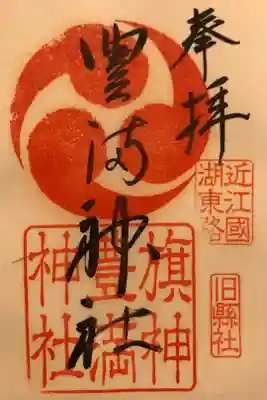 奉拝
近江國
湖東路
旧縣社
豊満神社
旗神
豊満
神社